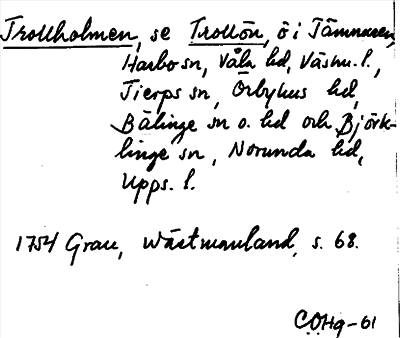 Trollholmen, se Trollön, ö i Tämnaren,
Harbo sn, Våla hd, Västm. l.,
Tierps sn, Örbyhus hd,
Bälinge sn o. hd och Björk-
linge sn, Norunda hd,
Upps. l.
1754 Grau, Wästmanland, s. 68.
C.O.Hg-61